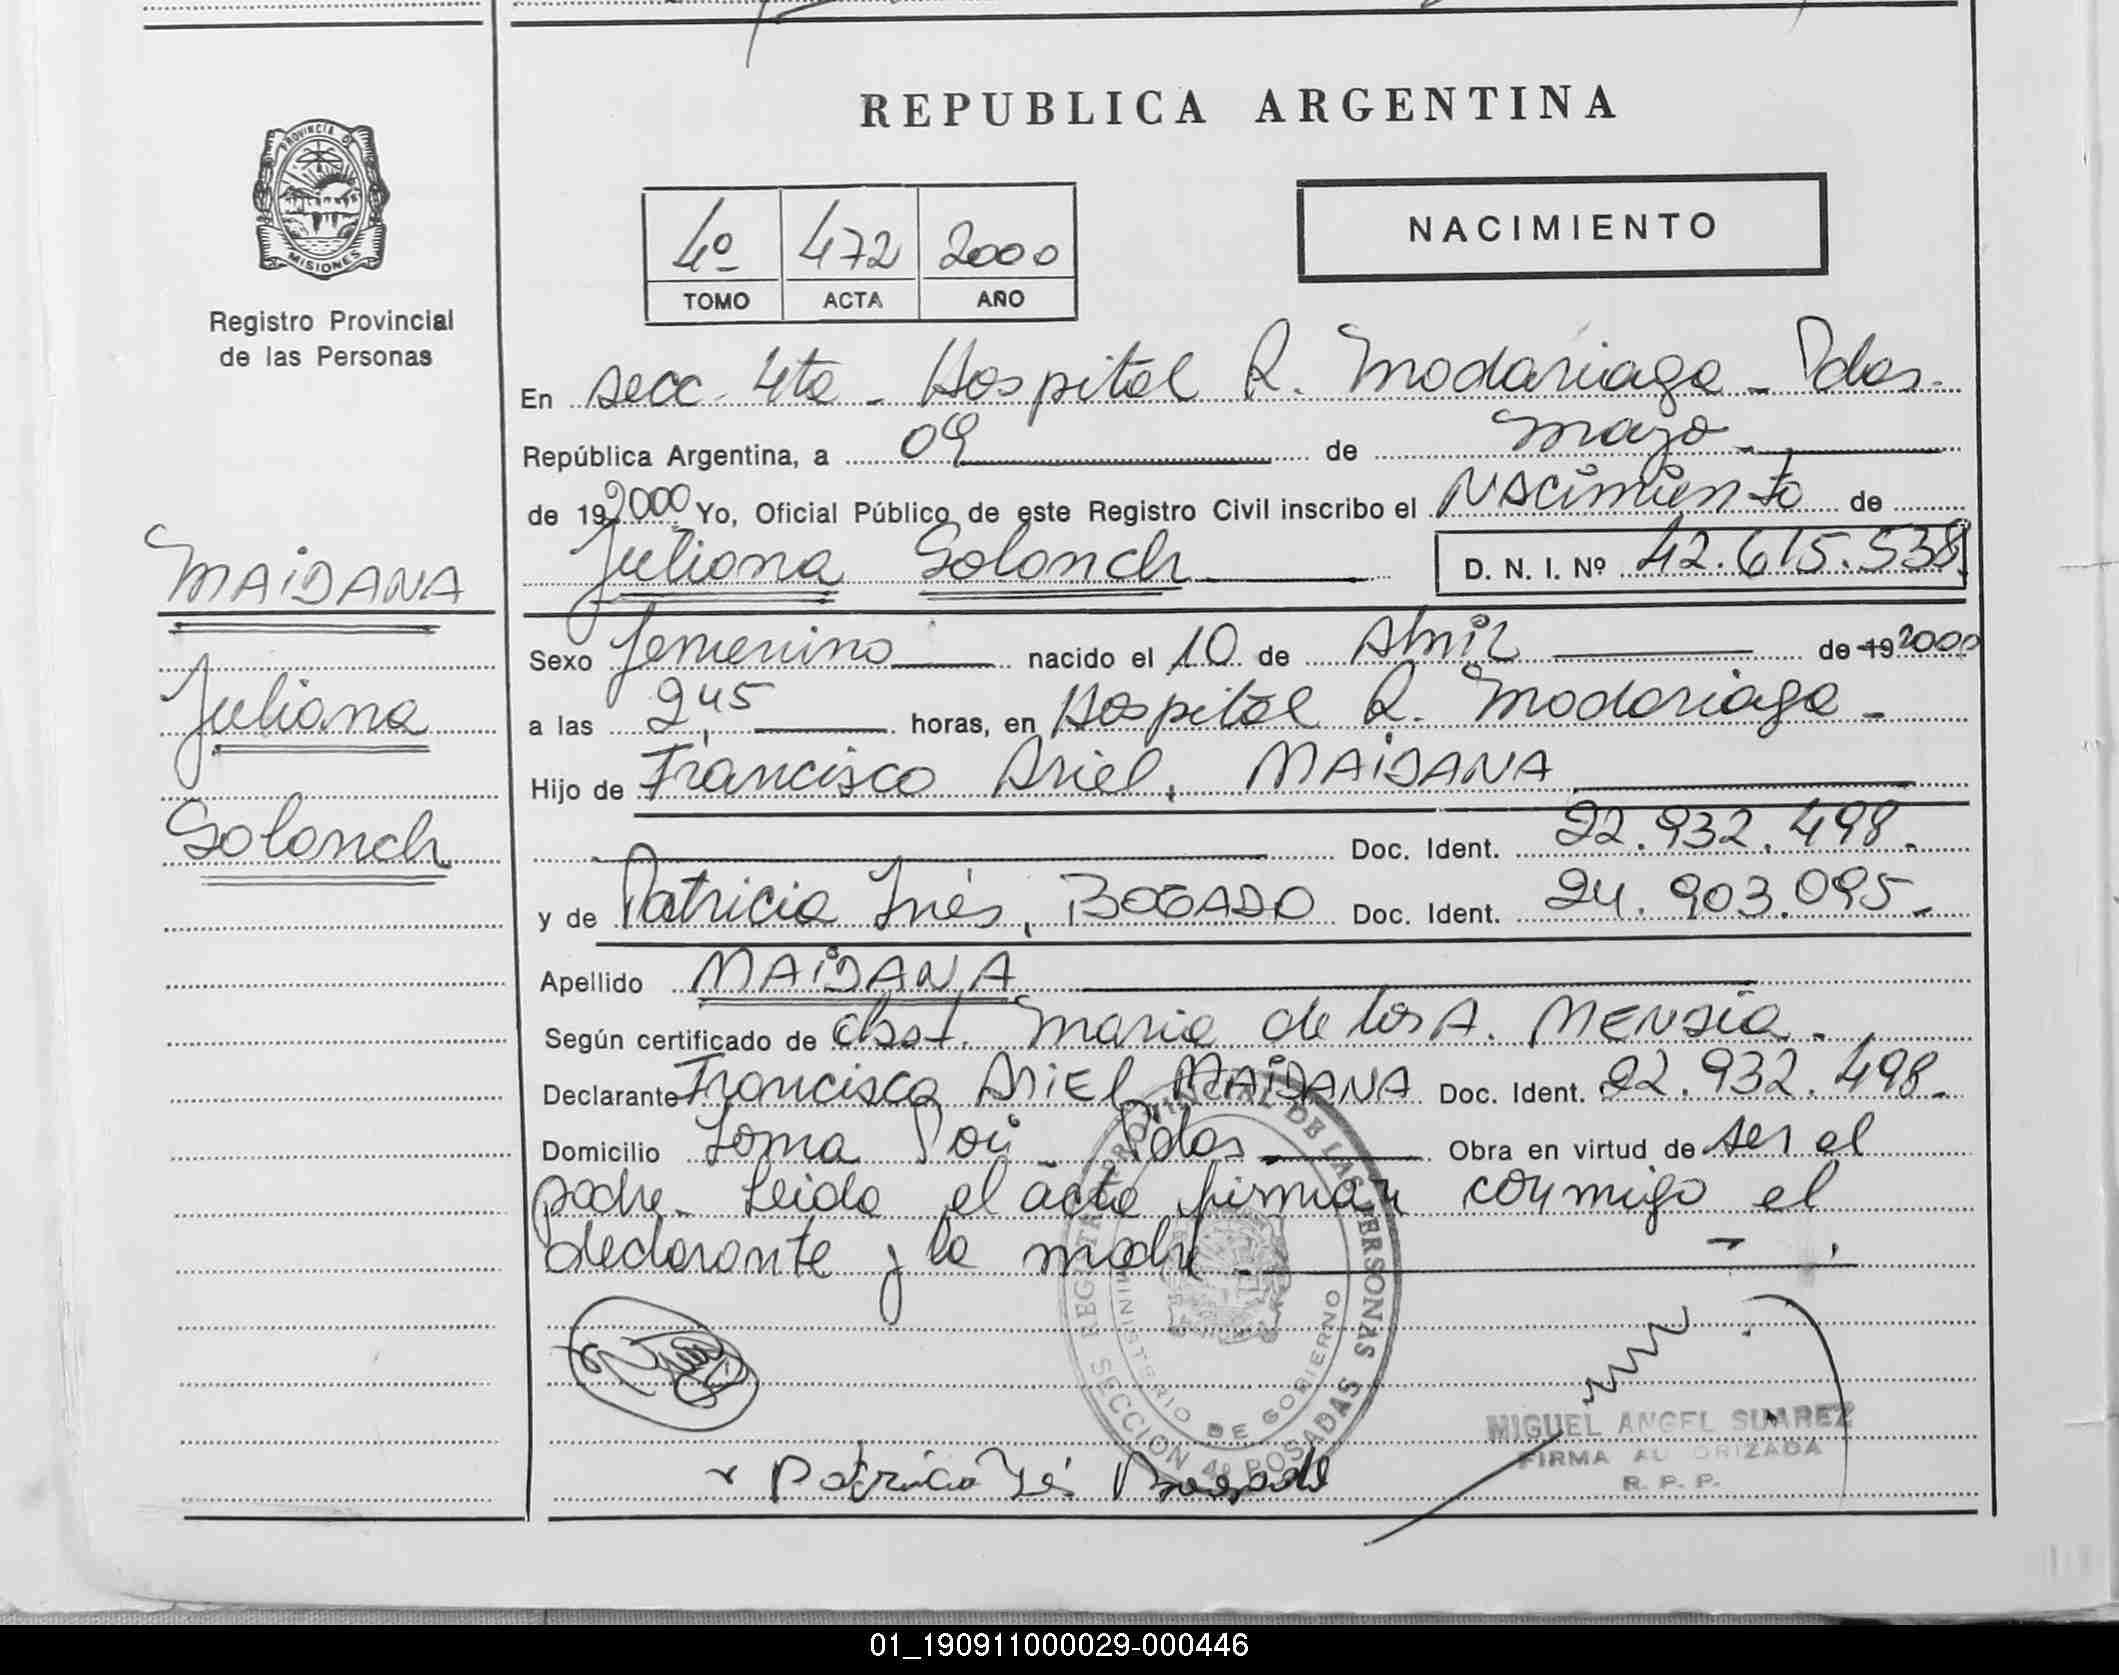 REPUBLICA ARGENTINA
PROVINCIA DE
MISIONES
Registro Provincial
de las Personas
4º 472 2000
TOMO ACTA AÑO
NACIMIENTO
En secc. 4ta - Hospital R. Madariaga - Pdas.
República Argentina, a 09 de mayo
de 192000 Yo, Oficial Público de este Registro Civil inscribo el Nacimiento de
Juliana Solanch D. N. I. Nº 42.615.538
MAIDANA
Juliana
Solanch
Sexo femenino nacido el 10 de Abril de 19 2000
a las 2,45 horas, en Hospital R. Madariaga -
Hijo de Francisco Ariel, MAIDANA
Doc. Ident. 22.932.498.
y de Patricia Inés, BOGADO Doc. Ident. 24.903.095-
Apellido MAIDANA
Según certificado de obst. Maria de los A. MENDIA -
Declarante Francisco ARIEL MAIDANA Doc. Ident. 22.932.498-
Domicilio Loma Poi - Pdas Obra en virtud de ser el
padre. Leida el acta firman conmigo el
declarante y la madre -
REGISTRO PROVINCIAL DE LAS PERSONAS
MINISTERIO DE GOBIERNO
SECCION 4º POSADAS
Patricia Inés Bogado
MIGUEL ANGEL SUAREZ
FIRMA AUTORIZADA
R. P. P.
01_190911000029-000446